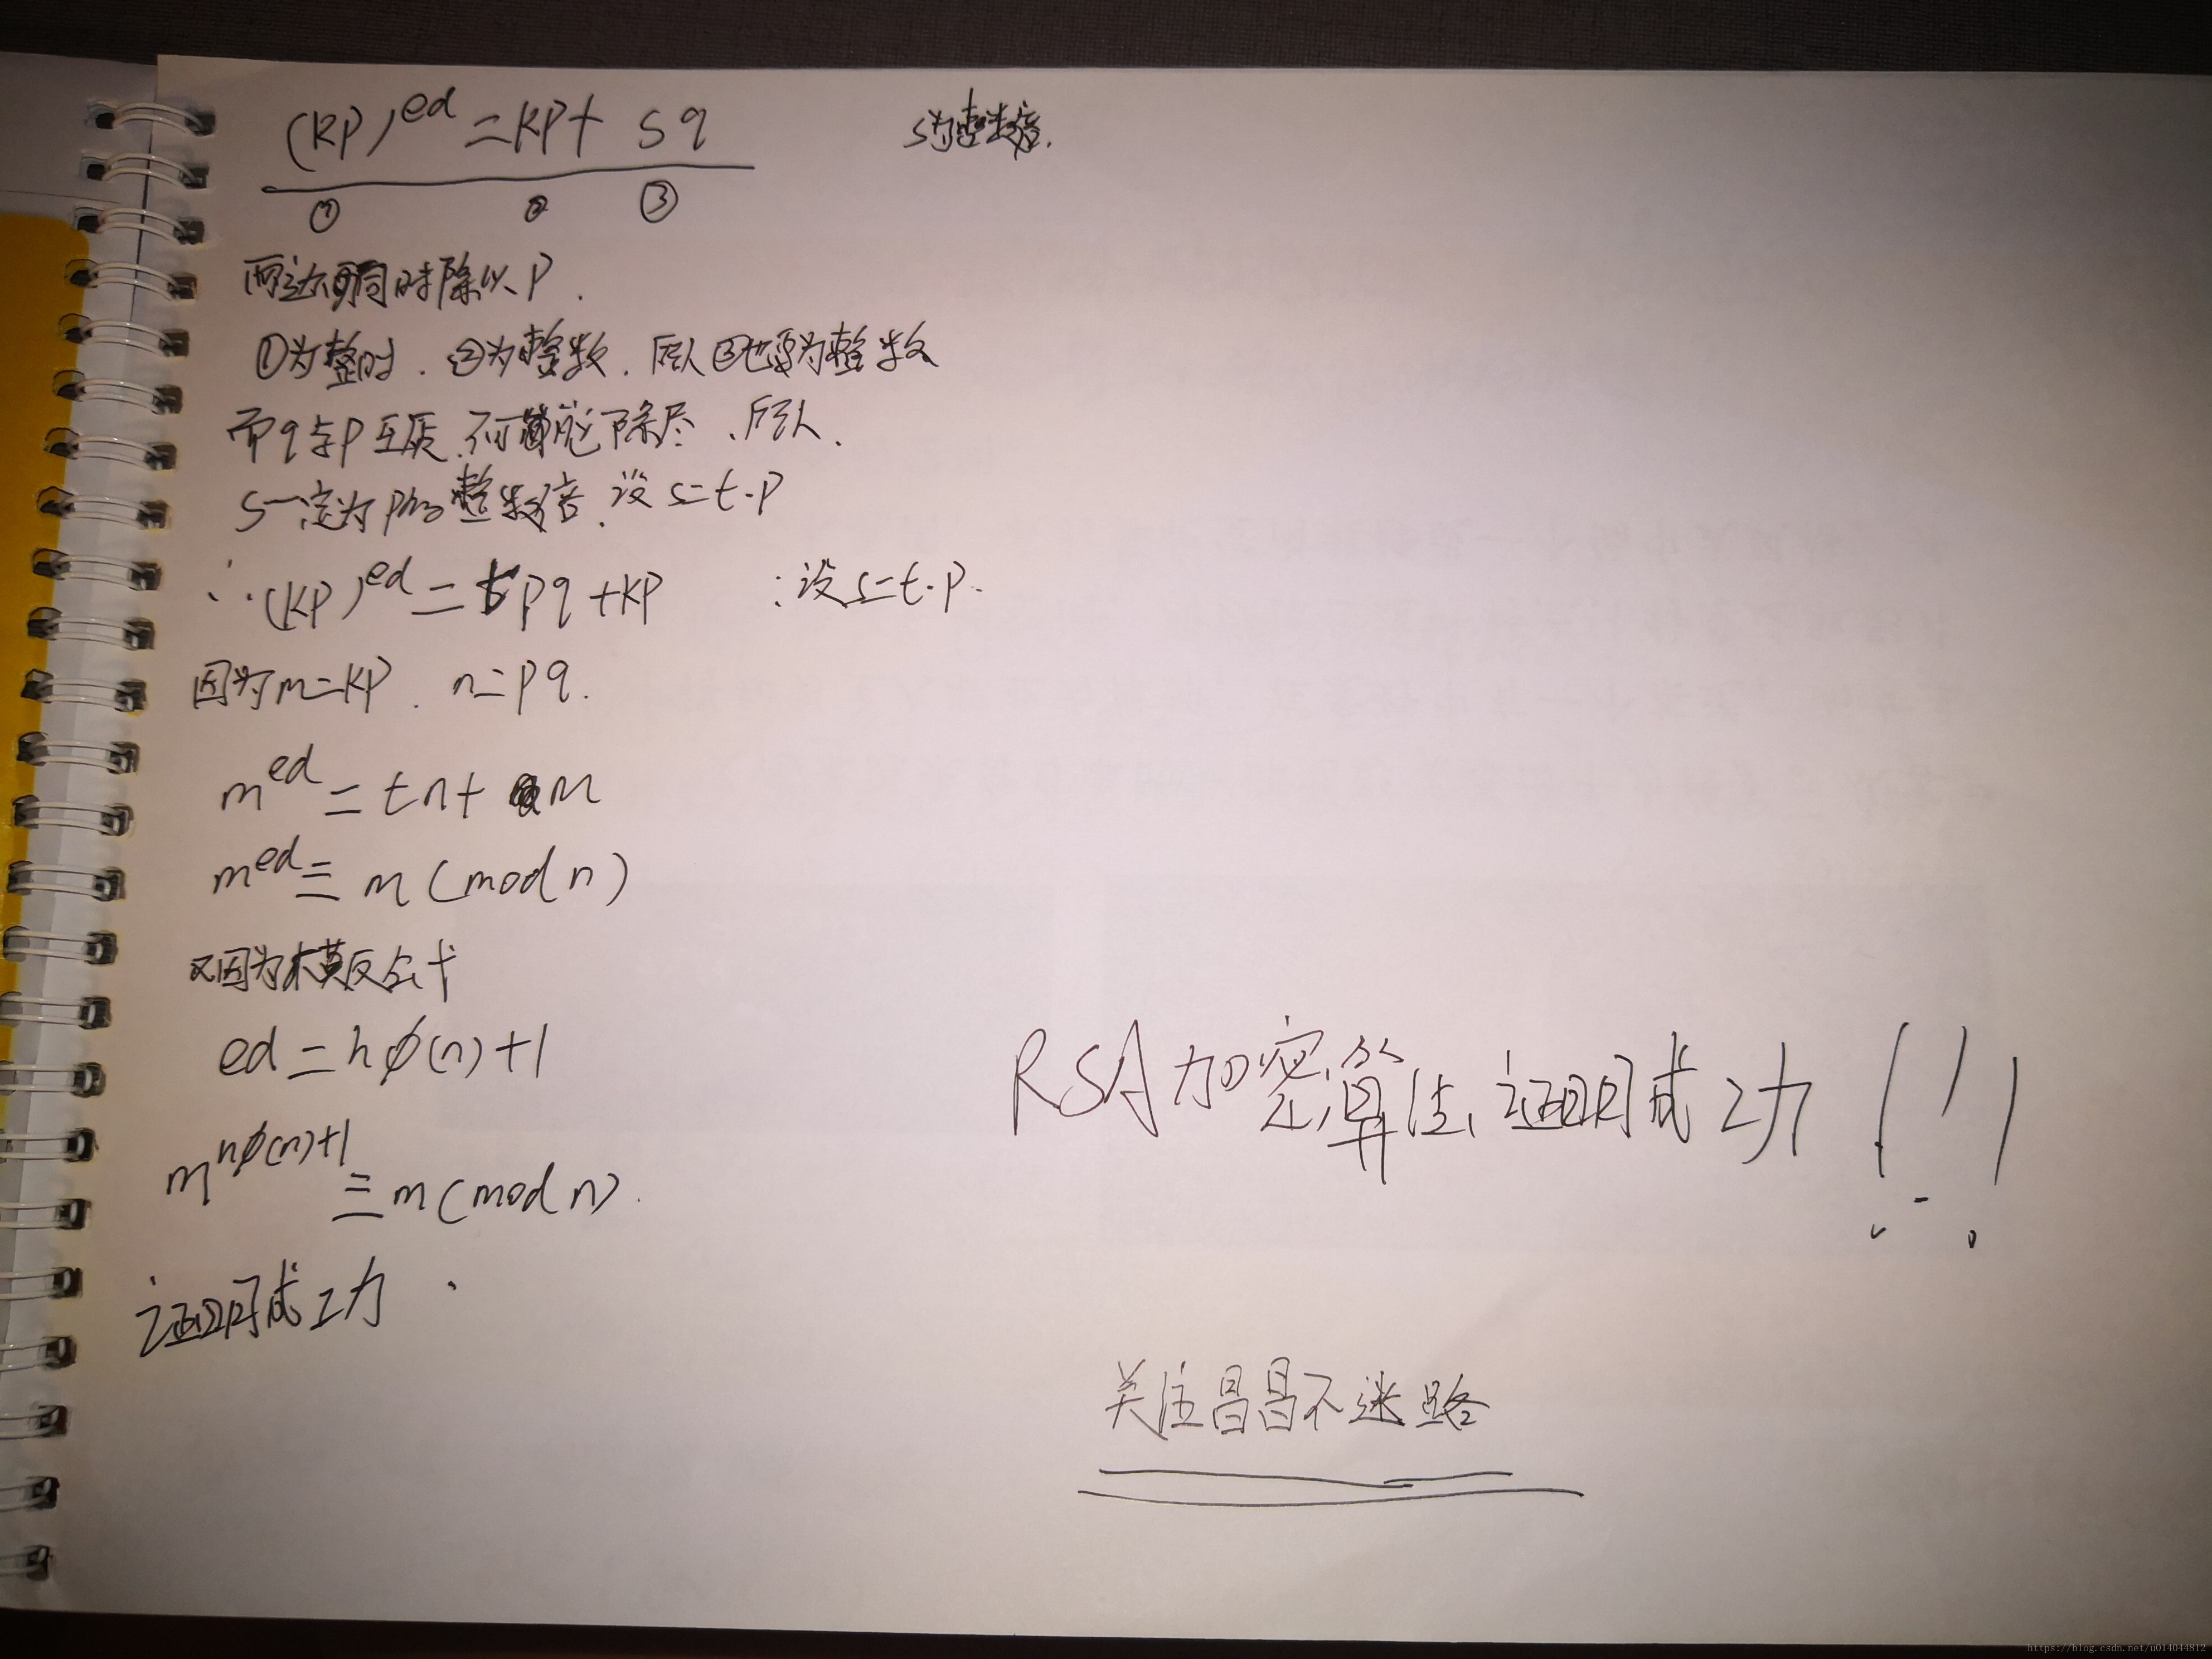 (kp)^ed = kp + sq s为整数倍.
① ② ③
两边同时除以P.
①为整时. ②为整数. 所以③也要为整数
而q与P互质.不可能除尽.所以.
S一定为P的整数倍.设s=t·P
∴(kp)^ed = tpq+kp :设s=t·p.
因为m=kp. n=pq.
m^ed = tn+ m
m^ed ≡ m (mod n)
又因为模反公式
ed = hφ(n)+1
m^hφ(n)+1 ≡ m (mod n).
证明成功.
RSA加密算法证明成功!!!
关注昌昌不迷路
https://blog.csdn.net/u014044812